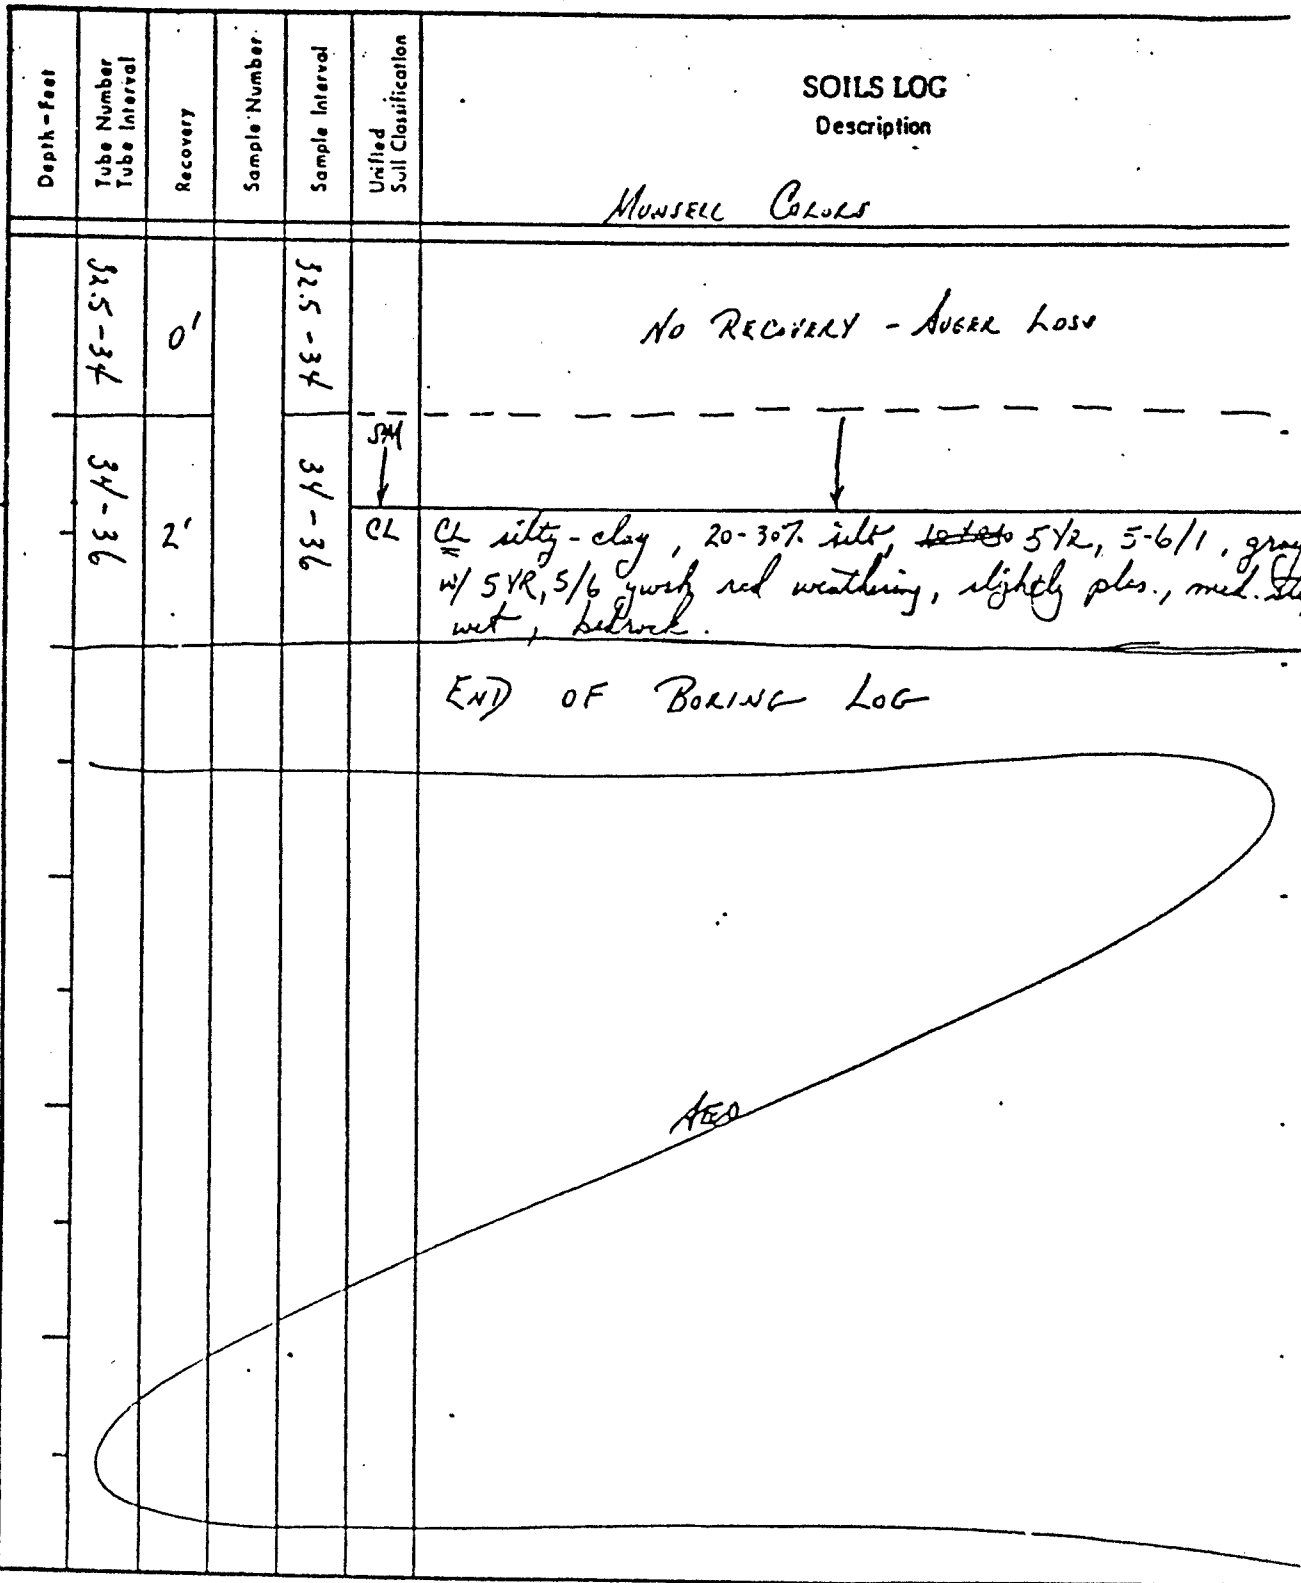 SOILS LOG
Description
Depth-Feet
Tube Number
Tube Interval
Recovery
Sample Number
Sample Interval
Unified
Soil Classification
MUNSELL COLORS
32.5-34
0'
32.5-34
NO RECOVERY - AUGER LOSS
SM
34-36
2'
34-36
CL
CL silty-clay, 20-30% silt, 5YR, 5-6/1, gray
w/ 5YR, 5/6 ywish red weathering, slightly plas., med.
wet, bedrock.
END OF BORING LOG